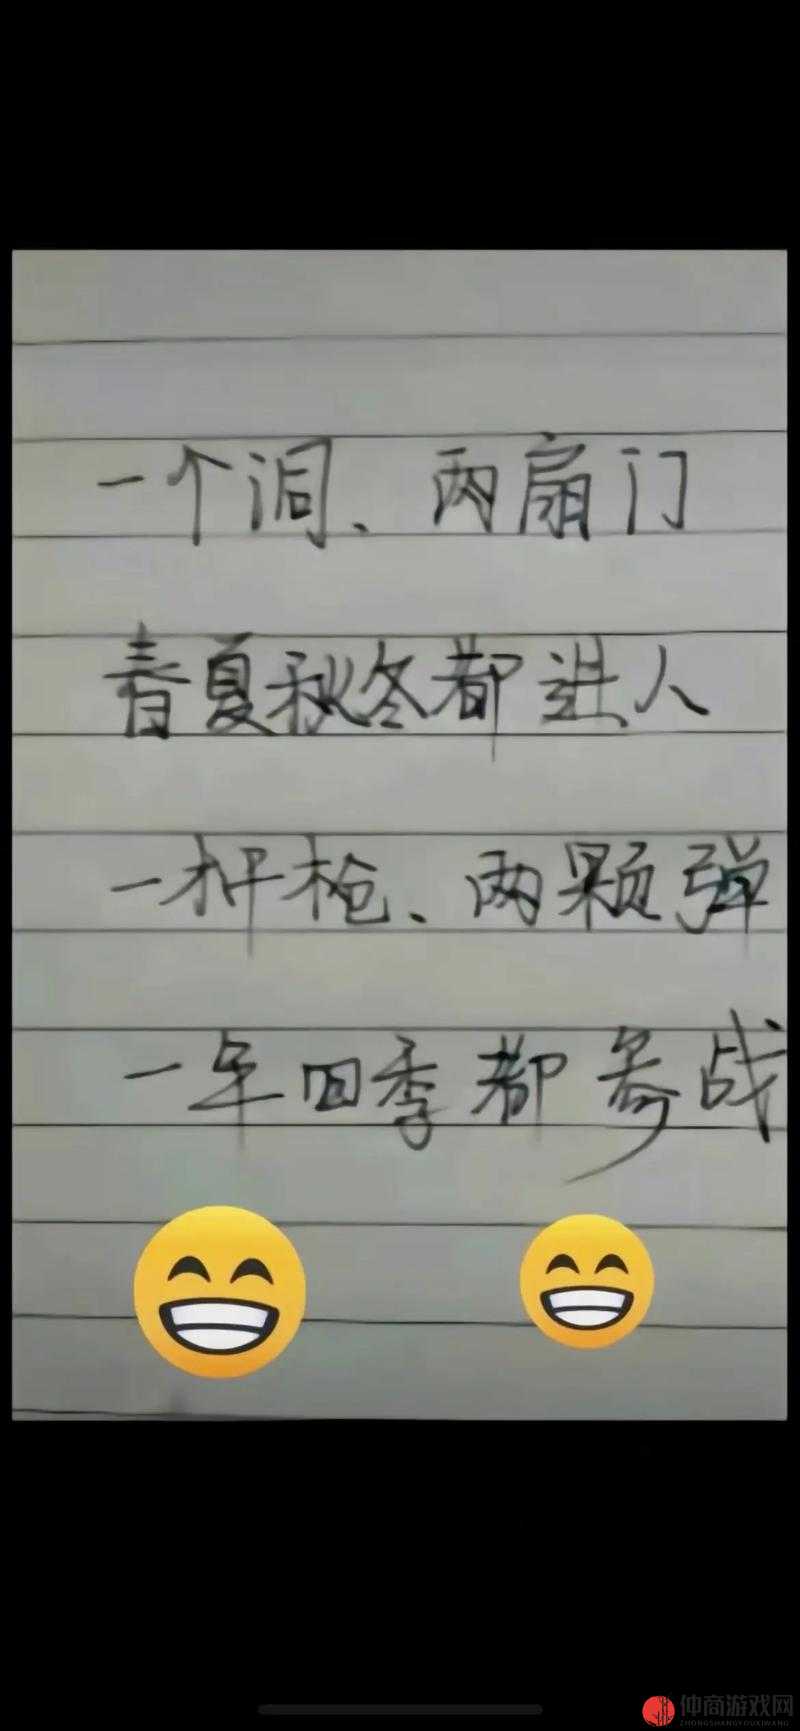 一个洞、两扇门
春夏秋冬都进人
一杆枪、两颗弹
一年四季都参战
仲商游戏网
ZHONGSHANGYOUXIWANG